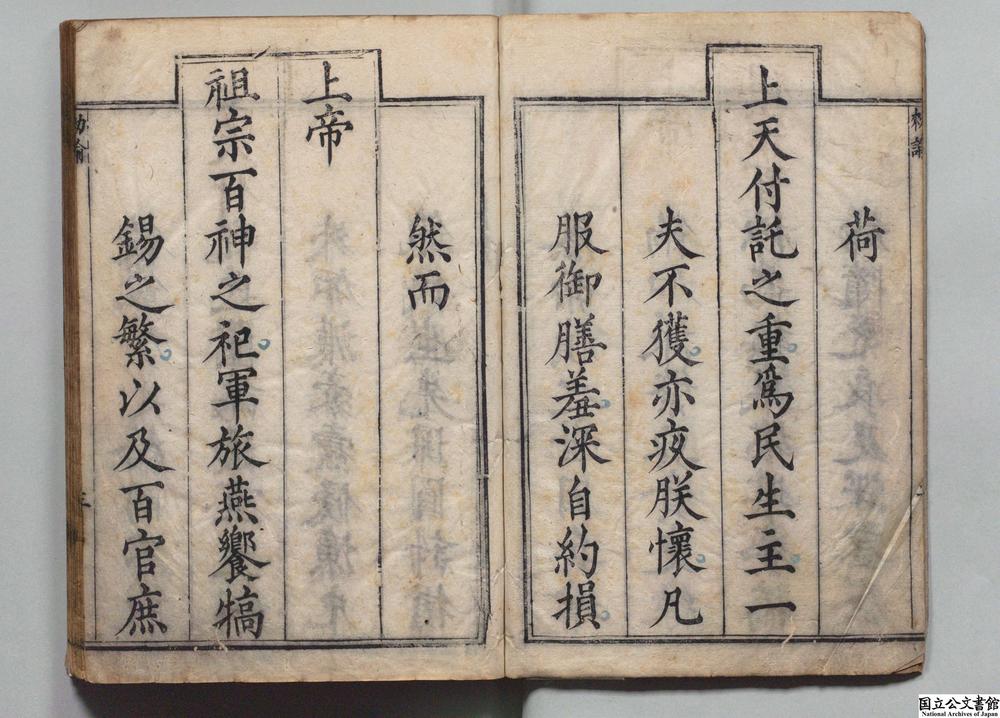 荷
上天付託之重為民生主一
夫不獲亦疚朕懷凡
服御膳羞深自約損
然而
上帝
祖宗百神之祀軍旅燕饗犒
錫之繁以及百官庶
三
国立公文書館
National Archives of Japan